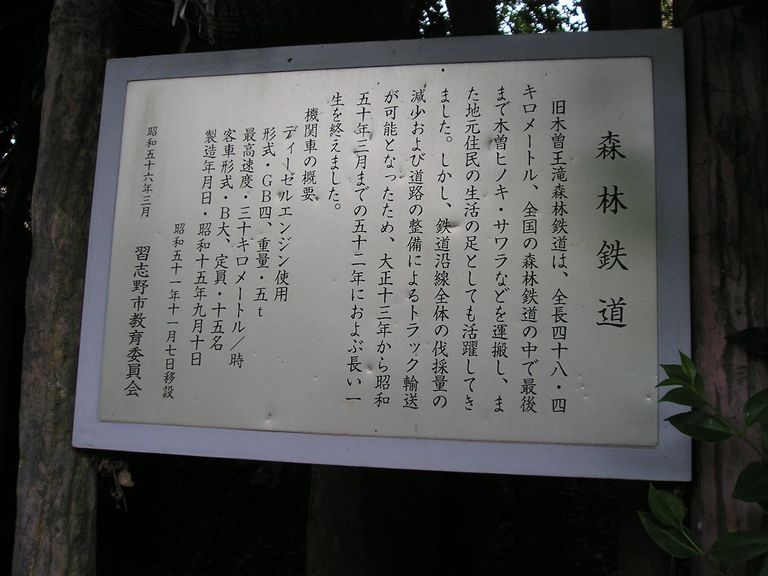 森林鉄道
旧木曽王滝森林鉄道は、全長四十八・四
キロメートル、全国の森林鉄道の中で最後
まで木曽ヒノキ・サワラなどを運搬し、ま
た地元住民の生活の足としても活躍してき
ました。しかし、鉄道沿線全体の伐採量の
減少および道路の整備によるトラック輸送
が可能となったため、大正十三年から昭和
五十年三月までの五十二年におよぶ長い一
生を終えました。
機関車の概要
ディーゼルエンジン使用
形式・GB四、重量・五t
最高速度・三十キロメートル/時
客車形式・B大、定員・十五名
製造年月日・昭和十五年九月十日
昭和五十一年十一月七日移設
昭和五十六年三月 習志野市教育委員会